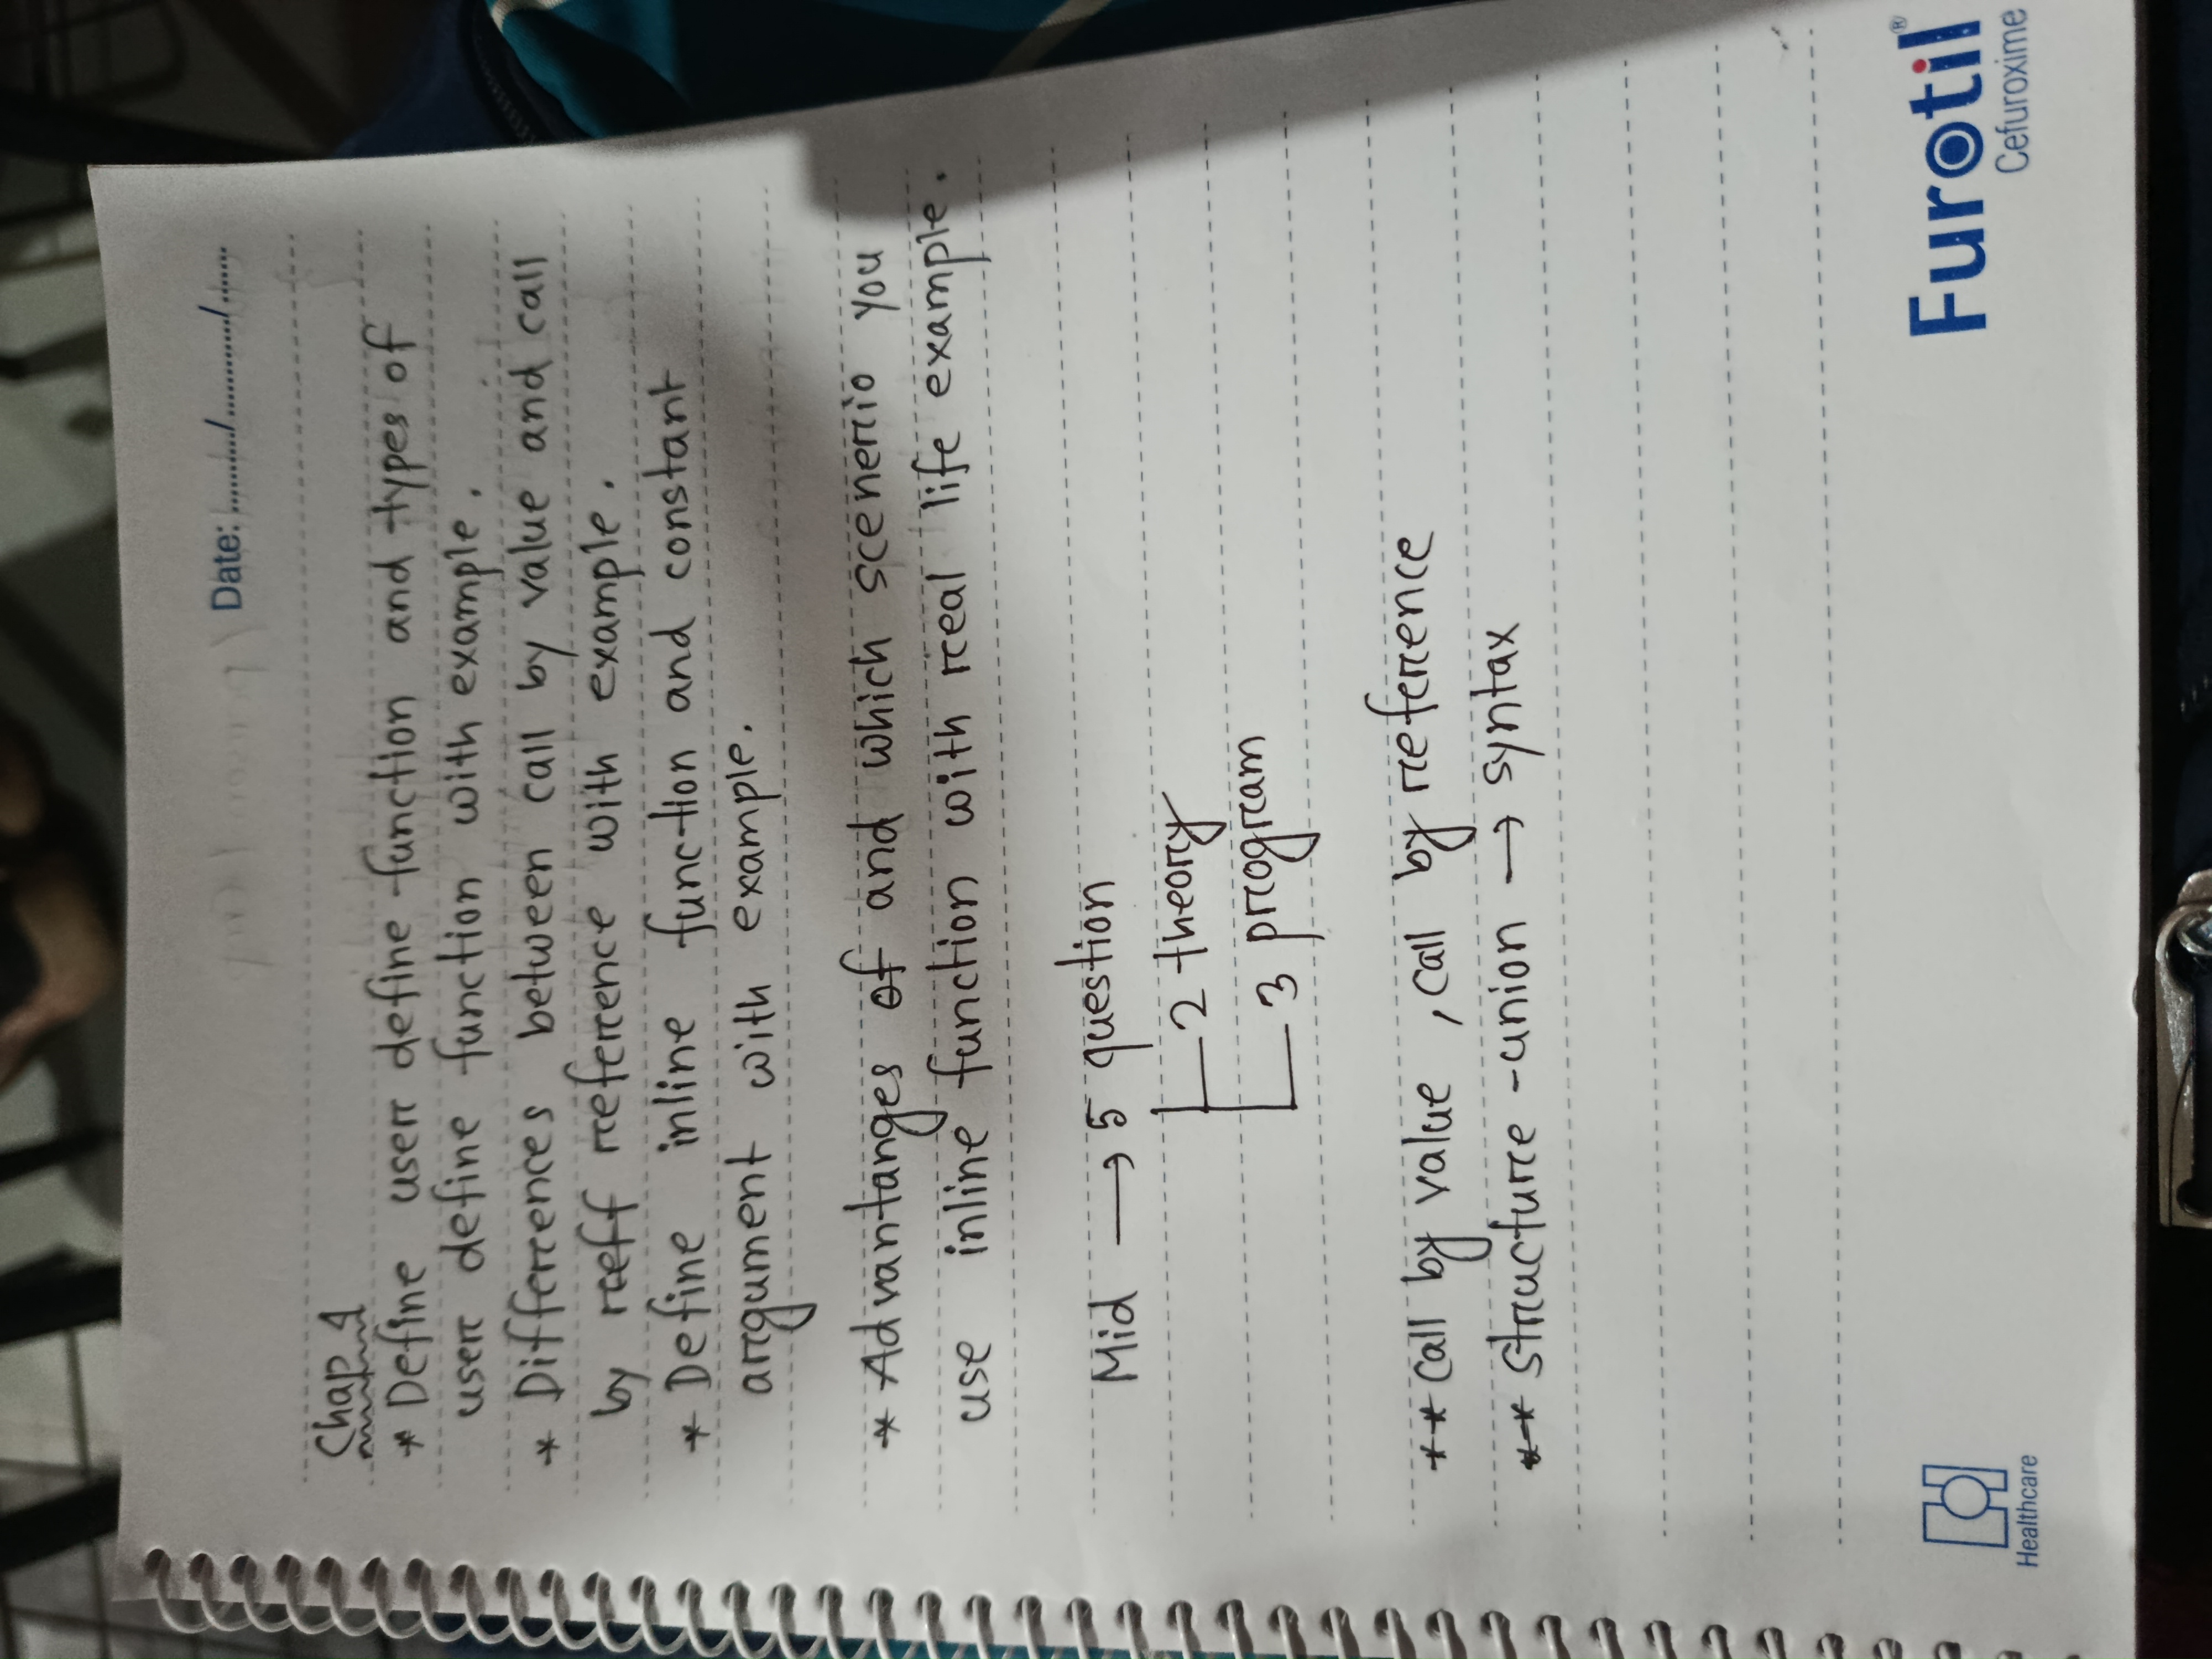 Date: ........../............/.......
Chap 4
* Define user define function and types of
user define function with example.
* Differences between call by value and call
by reff reference with example.
* Define inline function and constant
argument with example.
* Advantanges of and which scenerio you
use inline function with real life example.
Mid → 5 question
2 theory
3 program
** call by value, call by reference
** structure - union → syntax
Healthcare
Furotil®
Cefuroxime